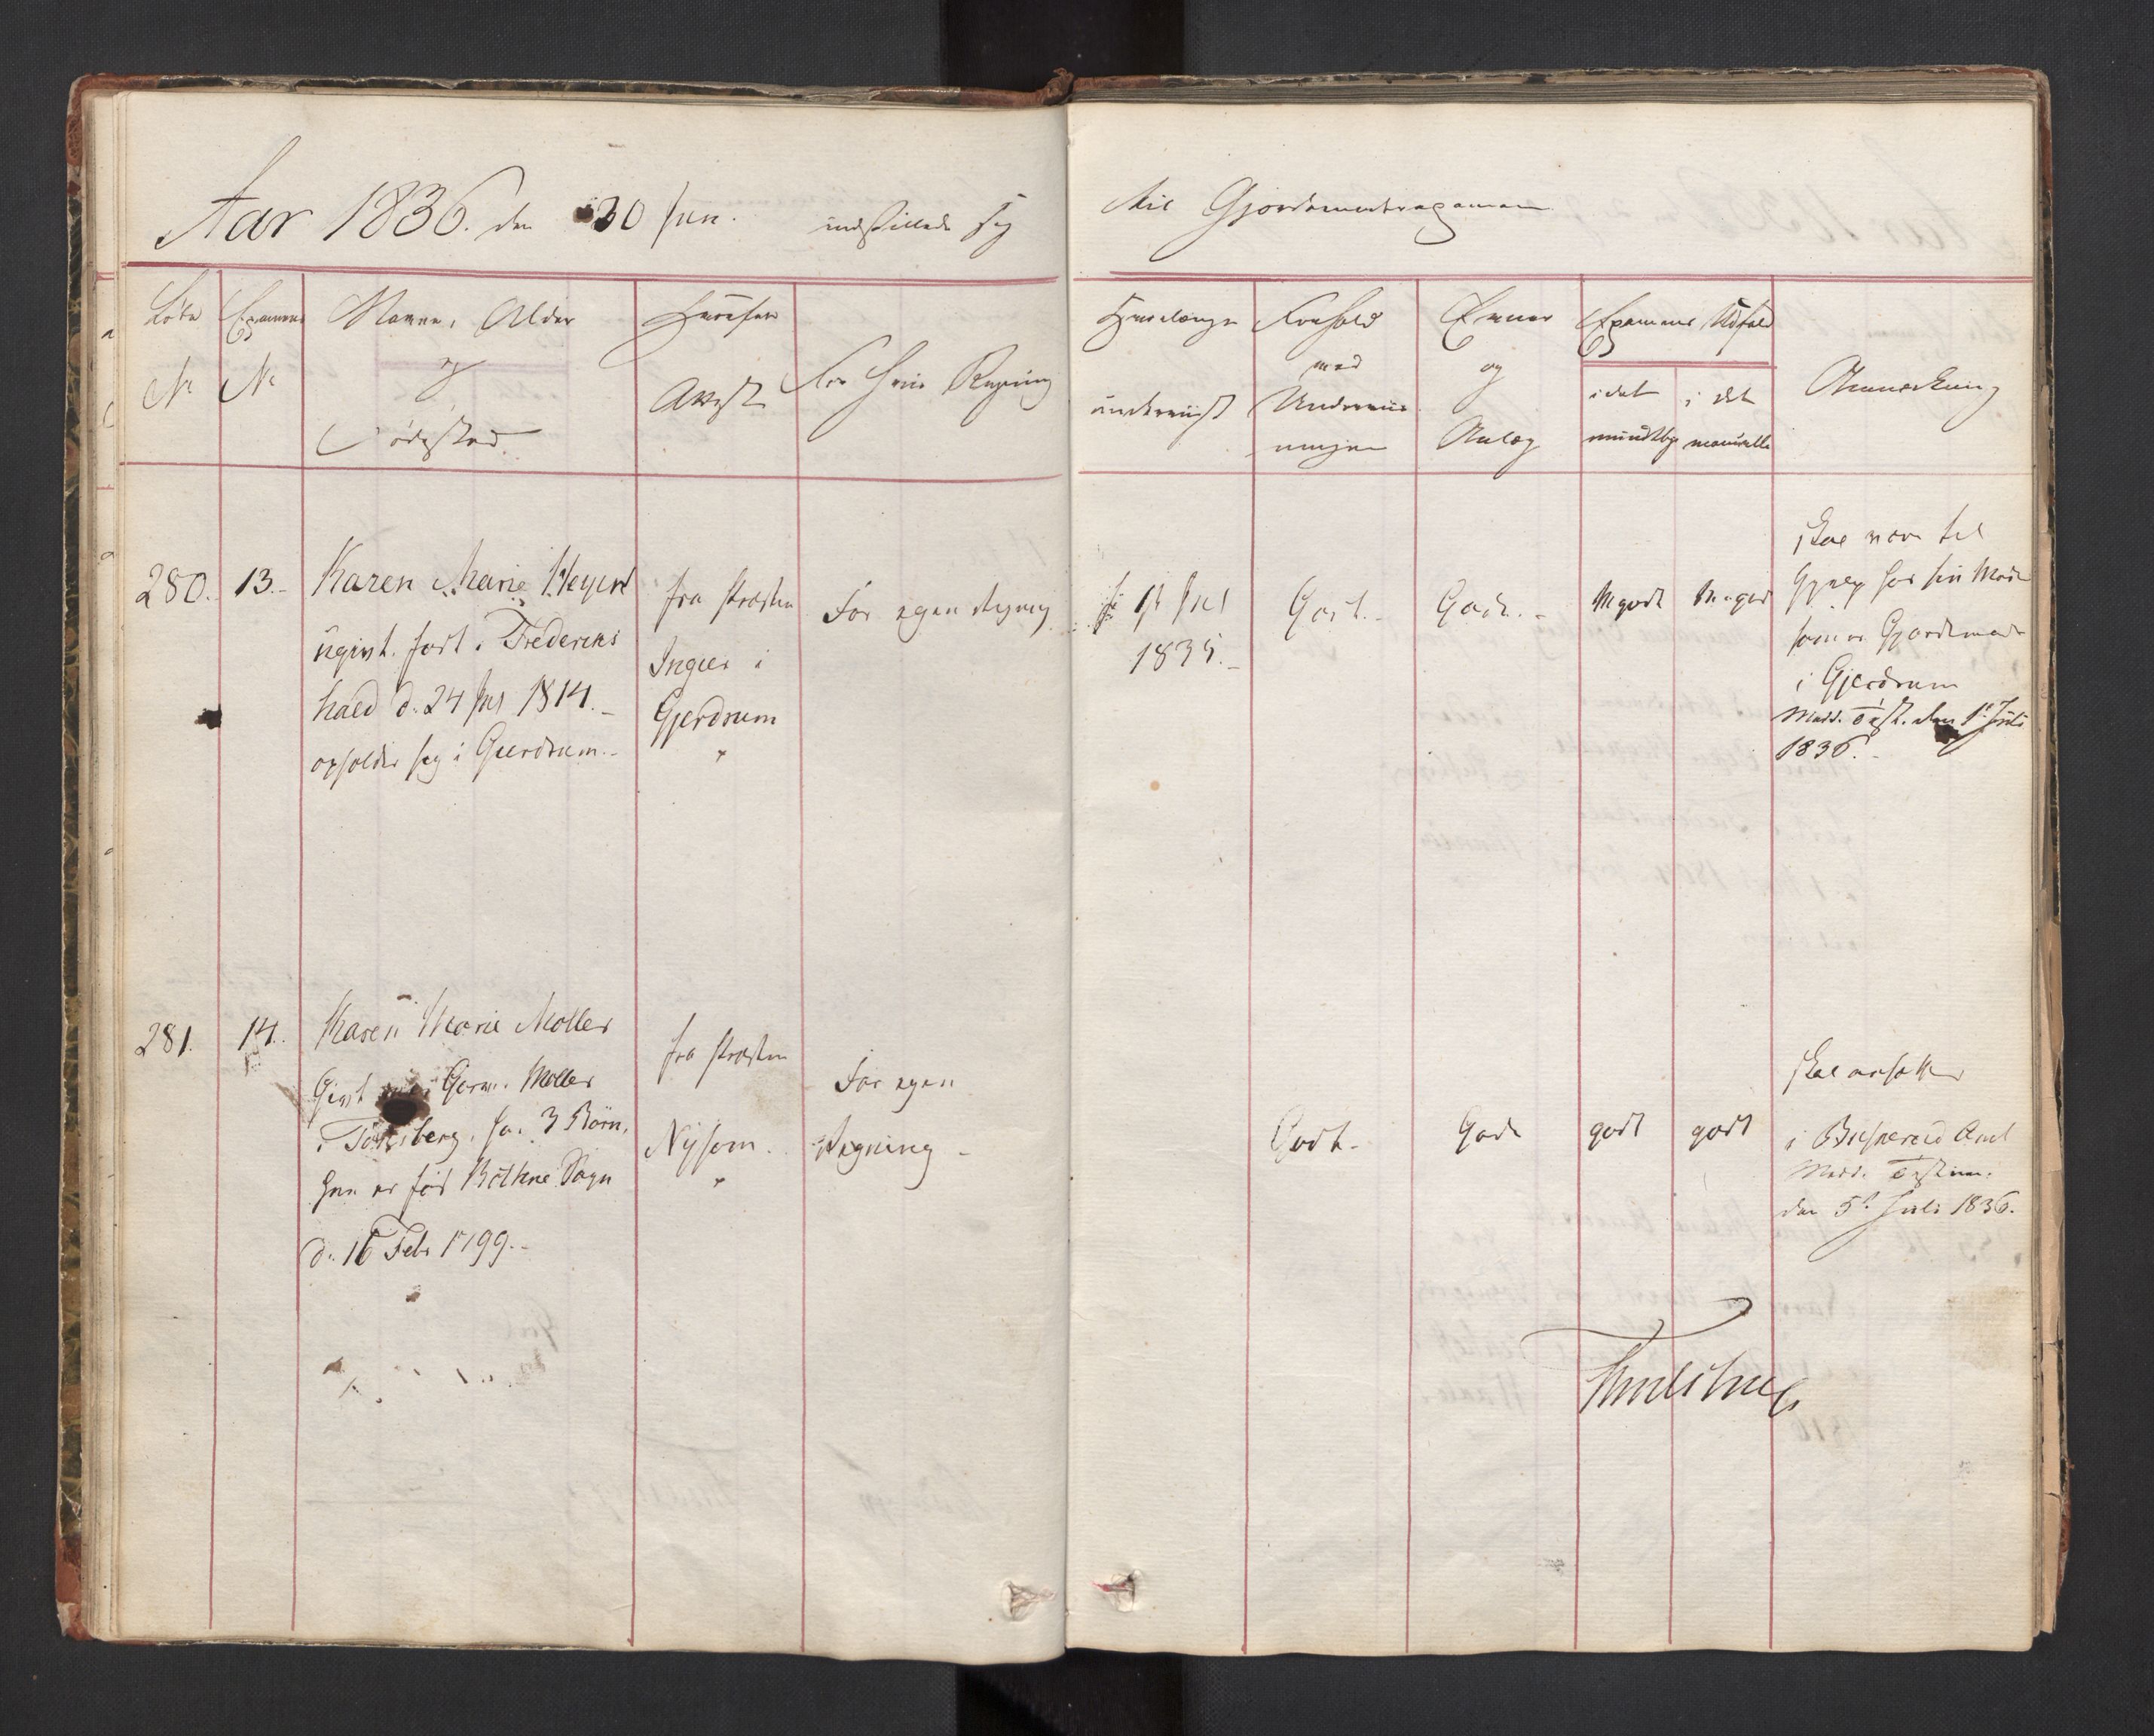 Aar 1836. den 30 Jun. indstillede sig
til Gjordemoderexamen
Løbe
No
Examens
No
Navne, Alder
og
Fødested.
Hvorfra
Attest
For hvis Regning
Hvorlænge
underviist
Forhold
med
Underviis
ningen
Evner
og
Anlæg
Examens Udfald
i det
mundtlige
i det
manuelle
Anmærkning
280. 13.
Karen Marie
ugivt. født i Frederiks
hald d. 24 Jul 1814.
opholder sig i Gjerdrum.
fra Præsten
Inger i
Gjerdrum
For egen Regning
1st Jul
1835.
Godt.
Gode.
Mgodt
Mgodt
skal være til
Hjelp for sin Moder
som er Gjordemoder
i Gjerdrum
Medd. Test. den 1e Juli
1836.
281. 14.
Karen Marie Moller
Givt Moller
i Tønsberg, har 3 Børn,
hun er fød Bothne Sogn
d. 16 Feb 1799.
fra Præsten
Nysom.
For egen
Regning
Godt.
Gode
godt
godt
skal ansættes
i Buskerud Amt
Medd. Testim.
den 5t Juli 1836.
Thulstrup